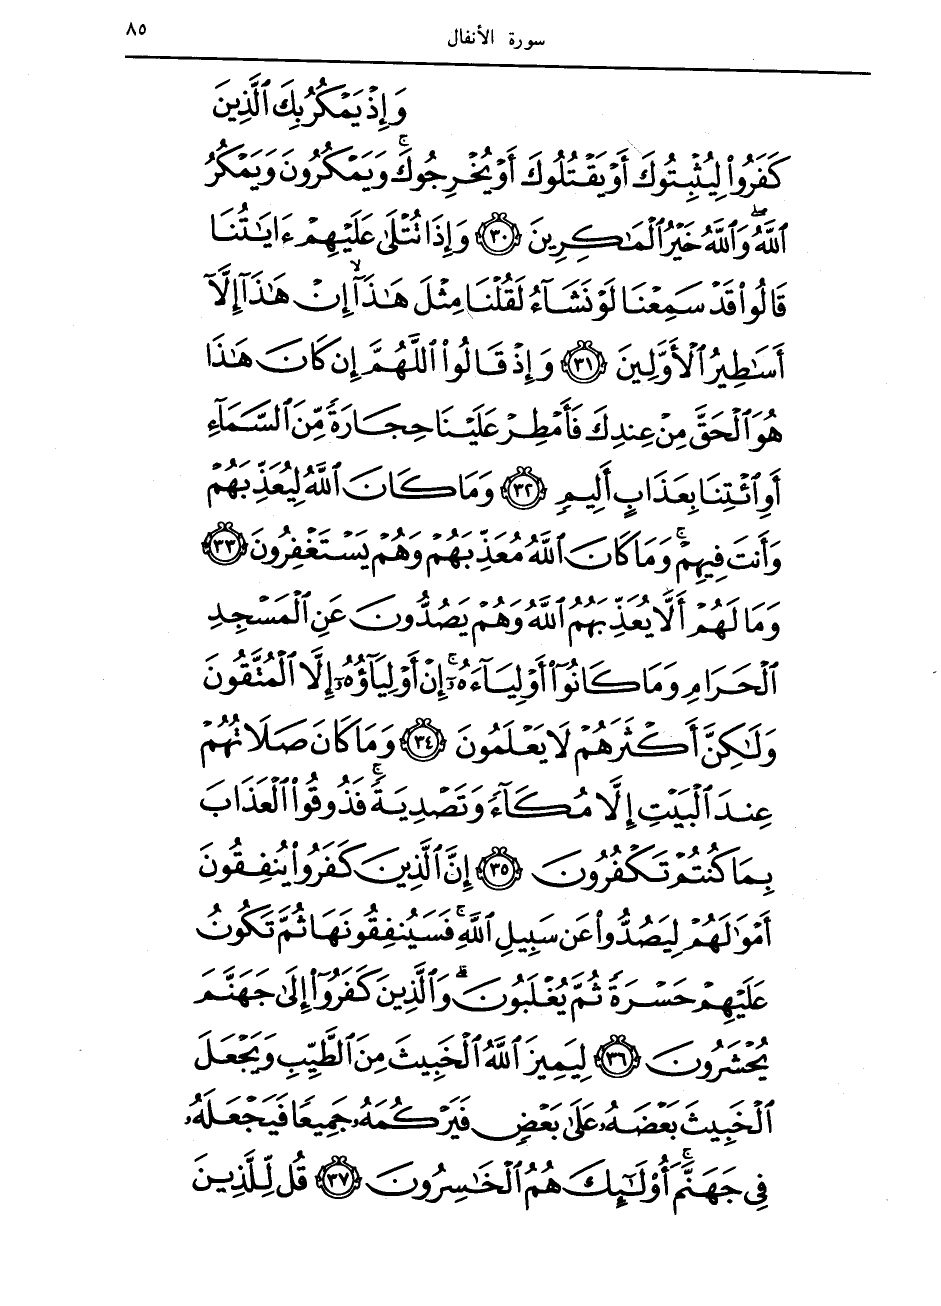 سورة الأنفال ٨٥
وَإِذْ يَمْكُرُ بِكَ ٱلَّذِينَ
كَفَرُوا۟ لِيُثْبِتُوكَ أَوْ يَقْتُلُوكَ أَوْ يُخْرِجُوكَ ۚ وَيَمْكُرُونَ وَيَمْكُرُ
ٱللَّهُ ۖ وَٱللَّهُ خَيْرُ ٱلْمَـٰكِرِينَ ﴿٣٠﴾ وَإِذَا تُتْلَىٰ عَلَيْهِمْ ءَايَـٰتُنَا
قَالُوا۟ قَدْ سَمِعْنَا لَوْ نَشَآءُ لَقُلْنَا مِثْلَ هَـٰذَآ ۙ إِنْ هَـٰذَآ إِلَّآ
أَسَـٰطِيرُ ٱلْأَوَّلِينَ ﴿٣١﴾ وَإِذْ قَالُوا۟ ٱللَّهُمَّ إِن كَانَ هَـٰذَا
هُوَ ٱلْحَقَّ مِنْ عِندِكَ فَأَمْطِرْ عَلَيْنَا حِجَارَةً مِّنَ ٱلسَّمَآءِ
أَوِ ٱئْتِنَا بِعَذَابٍ أَلِيمٍ ﴿٣٢﴾ وَمَا كَانَ ٱللَّهُ لِيُعَذِّبَهُمْ
وَأَنتَ فِيهِمْ ۚ وَمَا كَانَ ٱللَّهُ مُعَذِّبَهُمْ وَهُمْ يَسْتَغْفِرُونَ ﴿٣٣﴾
وَمَا لَهُمْ أَلَّا يُعَذِّبَهُمُ ٱللَّهُ وَهُمْ يَصُدُّونَ عَنِ ٱلْمَسْجِدِ
ٱلْحَرَامِ وَمَا كَانُوٓا۟ أَوْلِيَآءَهُۥٓ ۚ إِنْ أَوْلِيَآؤُهُۥٓ إِلَّا ٱلْمُتَّقُونَ
وَلَـٰكِنَّ أَكْثَرَهُمْ لَا يَعْلَمُونَ ﴿٣٤﴾ وَمَا كَانَ صَلَاتُهُمْ
عِندَ ٱلْبَيْتِ إِلَّا مُكَآءً وَتَصْدِيَةً ۚ فَذُوقُوا۟ ٱلْعَذَابَ
بِمَا كُنتُمْ تَكْفُرُونَ ﴿٣٥﴾ إِنَّ ٱلَّذِينَ كَفَرُوا۟ يُنفِقُونَ
أَمْوَٰلَهُمْ لِيَصُدُّوا۟ عَن سَبِيلِ ٱللَّهِ ۚ فَسَيُنفِقُونَهَا ثُمَّ تَكُونُ
عَلَيْهِمْ حَسْرَةً ثُمَّ يُغْلَبُونَ ۗ وَٱلَّذِينَ كَفَرُوٓا۟ إِلَىٰ جَهَنَّمَ
يُحْشَرُونَ ﴿٣٦﴾ لِيَمِيزَ ٱللَّهُ ٱلْخَبِيثَ مِنَ ٱلطَّيِّبِ وَيَجْعَلَ
ٱلْخَبِيثَ بَعْضَهُۥ عَلَىٰ بَعْضٍ فَيَرْكُمَهُۥ جَمِيعًا فَيَجْعَلَهُۥ
فِى جَهَنَّمَ ۚ أُو۟لَـٰٓئِكَ هُمُ ٱلْخَـٰسِرُونَ ﴿٣٧﴾ قُل لِّلَّذِينَ